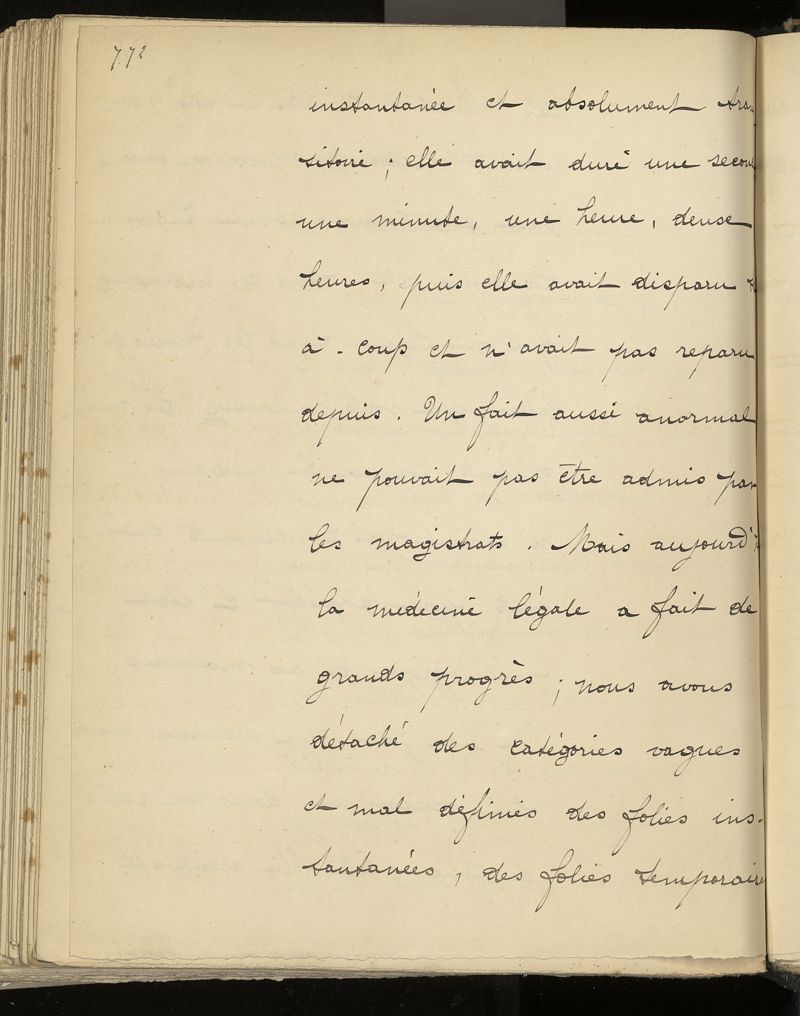 772
instantanée et absolument tran
sitoire ; elle avait duré une secon
une minute, une heure, deuse
heures, puis elle avait disparu
à - coup et n'avait pas reparu
depuis. Un fait aussi anormal
ne pouvait pas être admis par
les magistrats. Mais aujourd'
la médecine légale a fait de
grands progrès ; nous avons
détaché des catégories vagues
et mal définies des folies ins-
tantanées, des folies temporaire